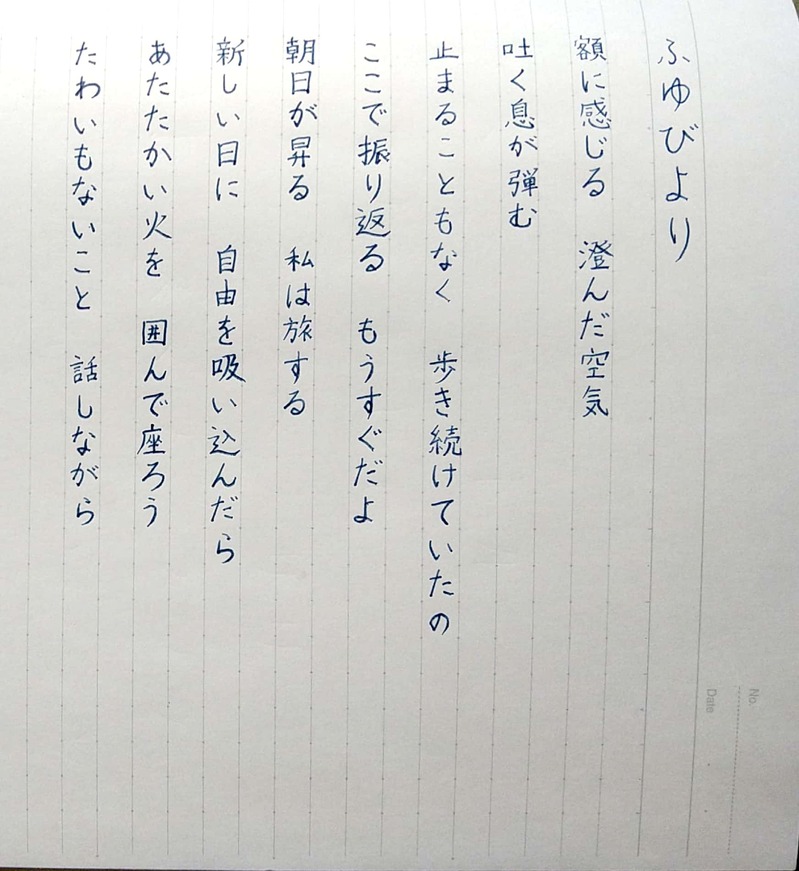 ふゆびより
額に感じる　澄んだ空気
吐く息が弾む
止まることもなく　歩き続けていたの
ここで振り返る　もうすぐだよ
朝日が昇る　私は旅する
新しい日に　自由を吸い込んだら
あたたかい火を　囲んで座ろう
たわいもないこと　話しながら
No.
Date